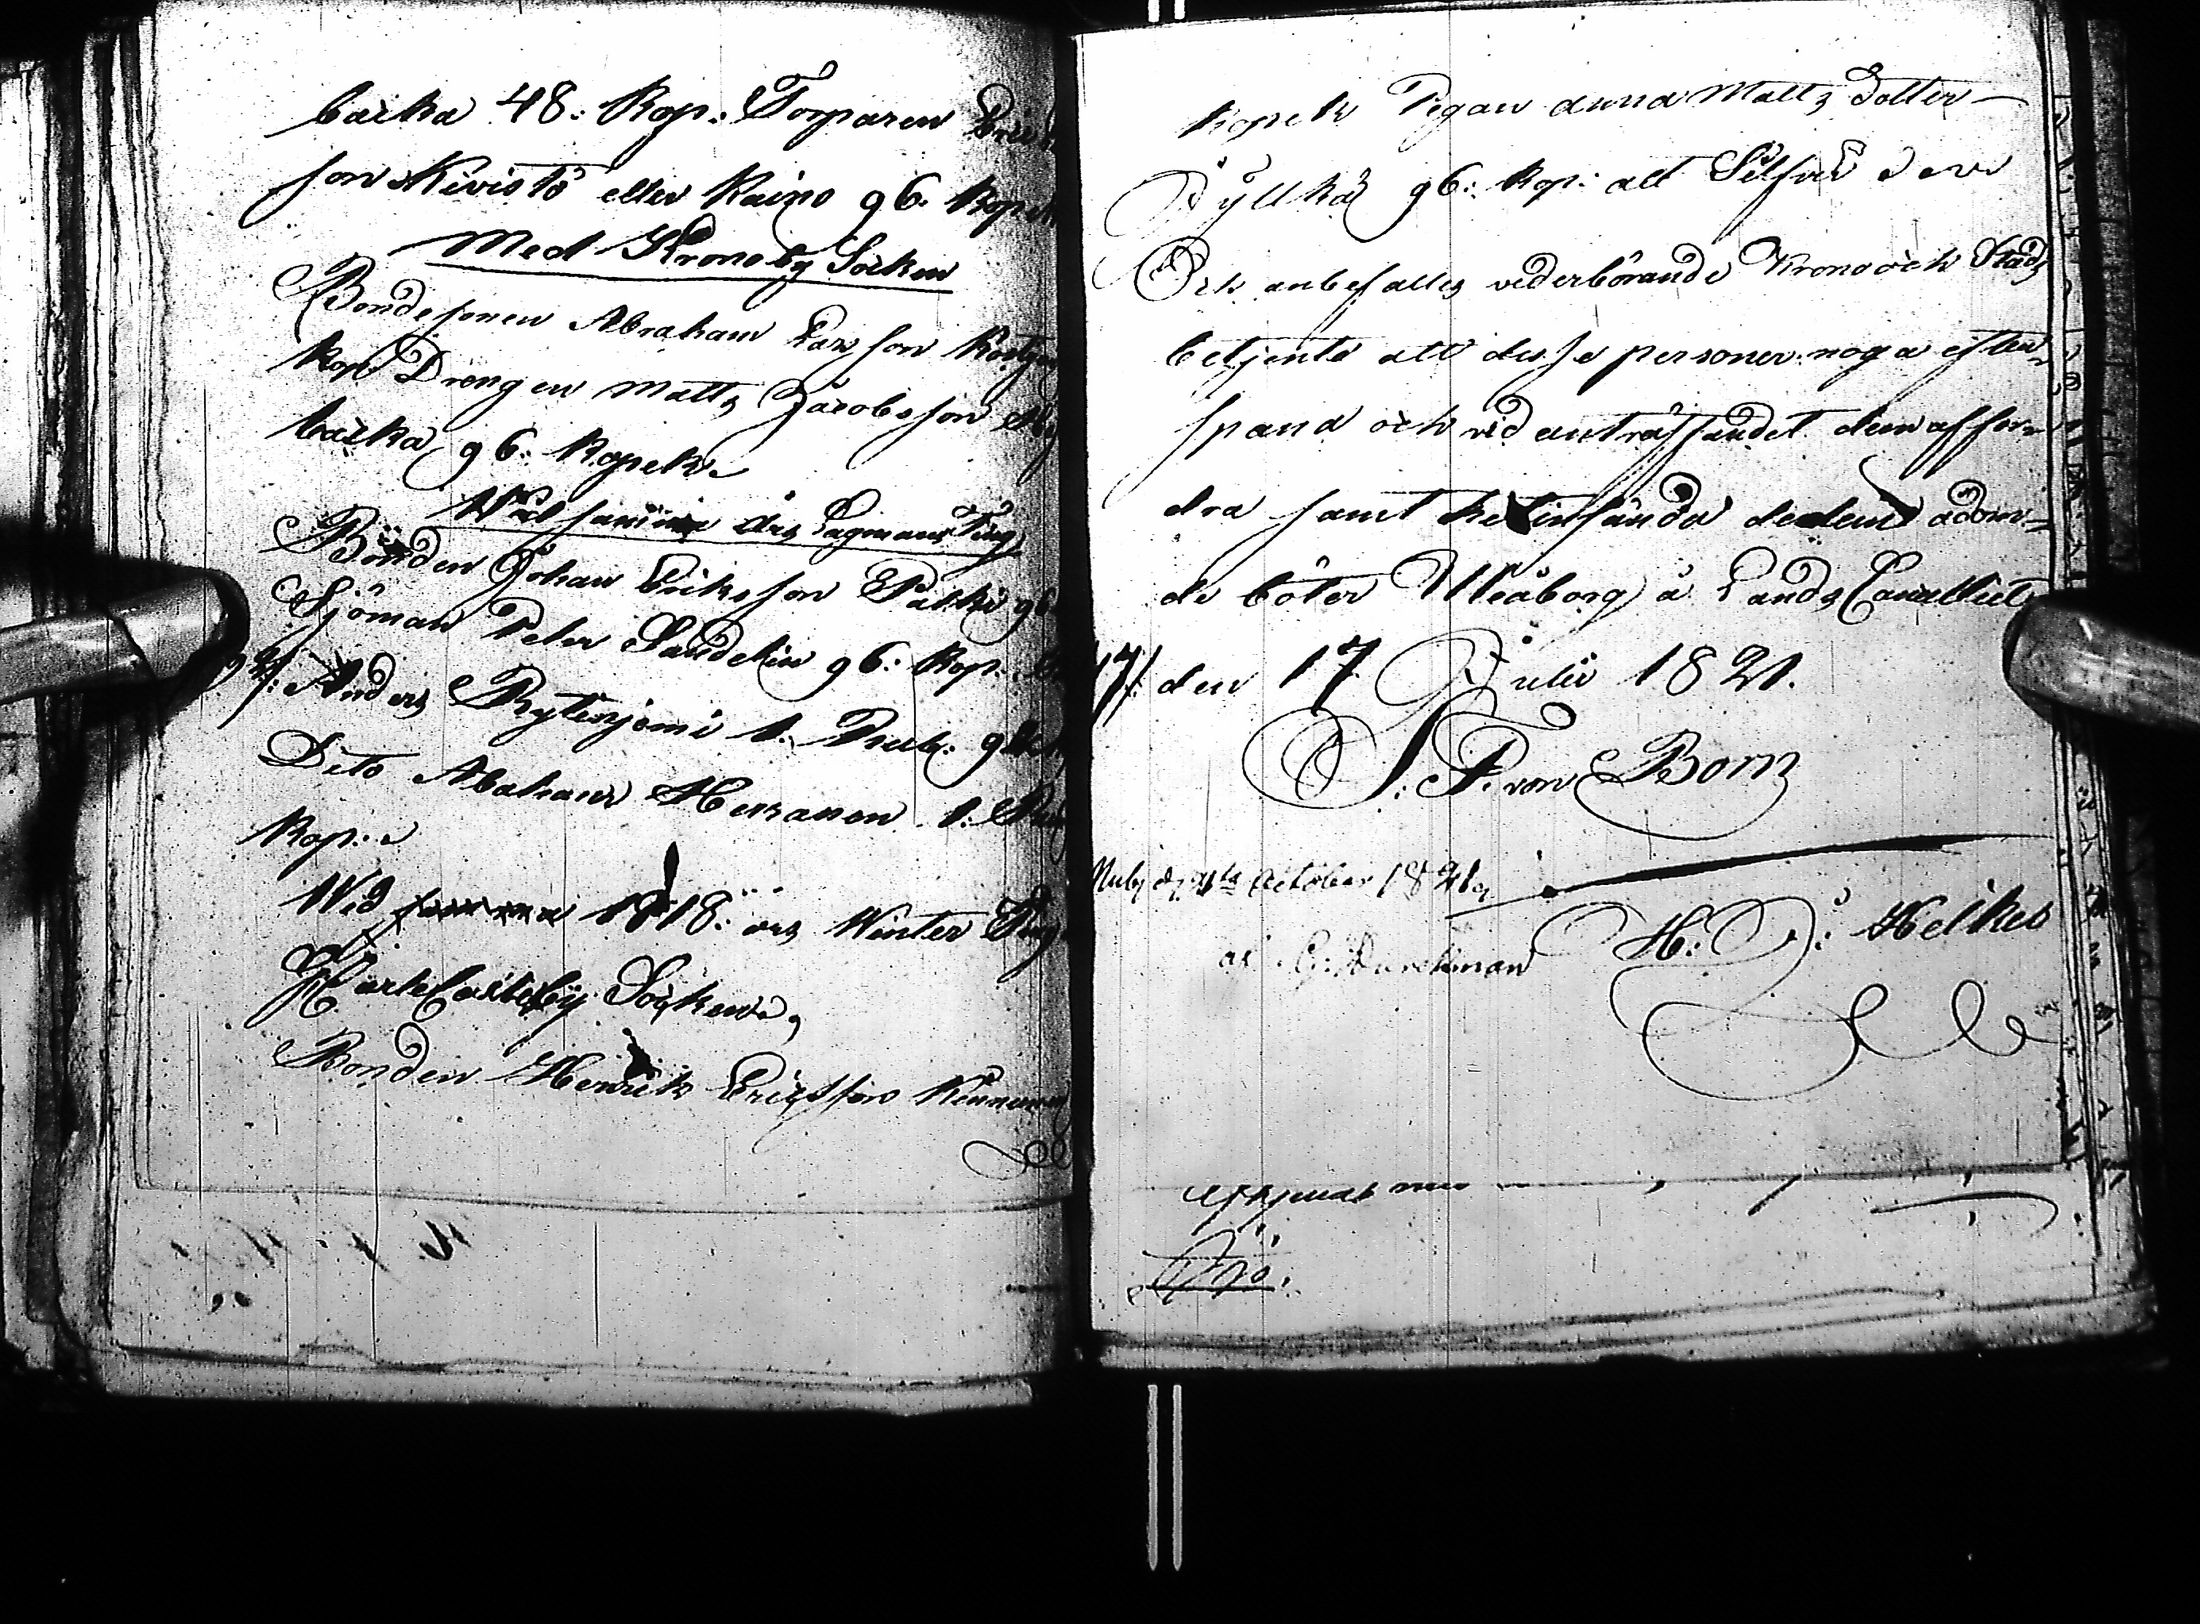 backa 48: Kop: Torparen
son Kivistö eller Kaino 96. Kopek
Med Kronoby Socken
Bondesonen Abraham Larsson
Kop Drengen Matts Jacobsson
backa 96: Kopek.
Wid samma års Lagmans Ting
Bonden Johan Eriksson Packi 96
Sjöman Peter Sandelin 96: Kop.
Anders Rytinjemi 1. Rub:
Dito Abaham Herranen 1: Rub
Kop:
Wid samma 1818: års Winter Ting
Carleby Socken,
Bonden Henrik Ericsson
Kopek Pigan Anna Matts dotter
Pyllkä 96: Kop: alt Silfver
Och anbefalles vederbörande Krono och Stads
betjente att desse personer noga efter-
spana och vid anträffandet dem affor-
dra samt hitinsända de dem ådöm-
de böter Uleåborg å Lands Cancelliet
den 17 Julii 1821.
S. F. von Born
October 1821
H: J: Helkes